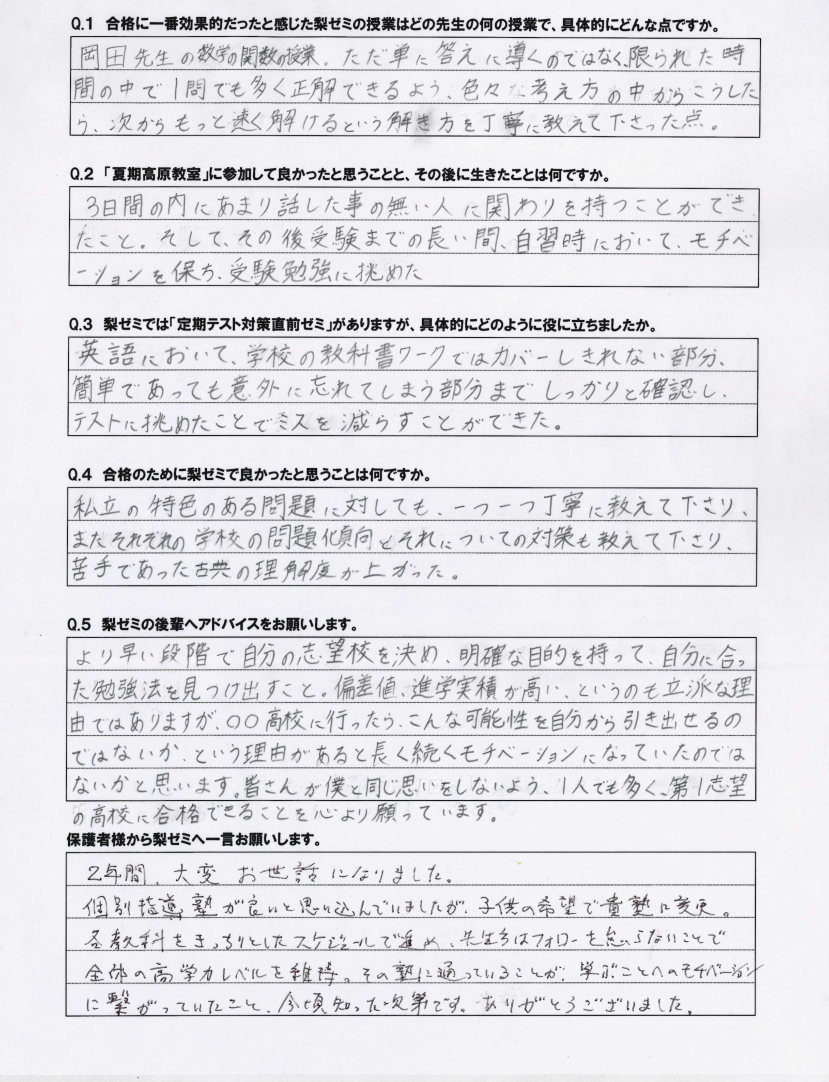 Q.1 合格に一番効果的だったと感じた梨ゼミの授業はどの先生の何の授業で、具体的にどんな点ですか。
岡田先生の数学の関数の授業。ただ単に答えに導くのではなく、限られた時
間の中で1問でも多く正解できるよう、色々な考え方の中からこうした
ら、次からもっと速く解けるという解き方を丁寧に教えて下さった点。
Q.2 「夏期高原教室」に参加して良かったと思うことと、その後に生きたことは何ですか。
3日間の内にあまり話した事の無い人に関わりを持つことができ
たこと。そして、その後受験までの長い間、自習時において、モチベ
ーションを保ち、受験勉強に挑めた
Q.3 梨ゼミでは「定期テスト対策直前ゼミ」がありますが、具体的にどのように役に立ちましたか。
英語において、学校の教科書ワークではカバーしきれない部分、
簡単であっても意外に忘れてしまう部分までしっかりと確認し、
テストに挑めたことでミスを減らすことができた。
Q.4 合格のために梨ゼミで良かったと思うことは何ですか。
私立の特色のある問題に対しても、一つ一つ丁寧に教えて下さり、
またそれぞれの学校の問題傾向とそれについての対策も教えて下さり、
苦手であった古典の理解度が上がった。
Q.5 梨ゼミの後輩へアドバイスをお願いします。
より早い段階で自分の志望校を決め、明確な目的を持って、自分に合っ
た勉強法を見つけ出すこと。偏差値、進学実積が高い、というのも立派な理
由ではありますが、〇〇高校に行ったら、こんな可能性を自分から引き出せるの
ではないか、という理由があると長く続くモチベーションになっていたのでは
ないかと思います。皆さんが僕と同じ思いをしないよう、1人でも多く、第1志望
の高校に合格できることを心より願っています。
保護者様から梨ゼミへ一言お願いします。
2年間、大変お世話になりました。
個別指導塾が良いと思い込んでいましたが、子供の希望で貴塾に変更。
各教科をきっちりとしたスケジュールで進め、先生方はフォローを怠らないことで
全体の高学力レベルを維持。その塾に通っていることが、学ぶことへのモチベーション
に繋がっていたこと、今頃知った次第です。ありがとうございました。